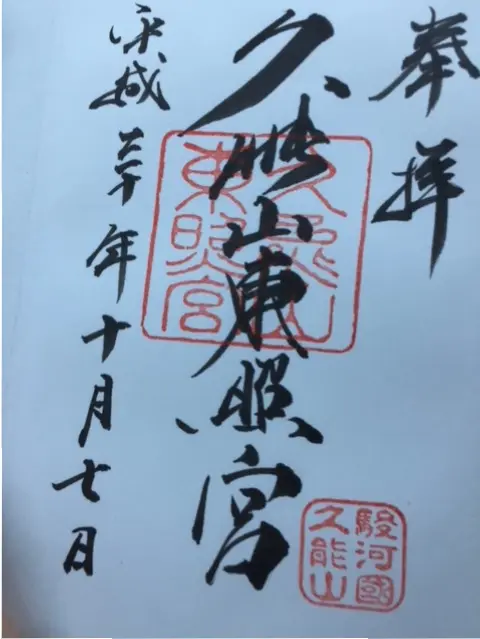 奉拝
久能山東照宮
久能山東照宮
駿河國
久能山
平成三十年十月七日